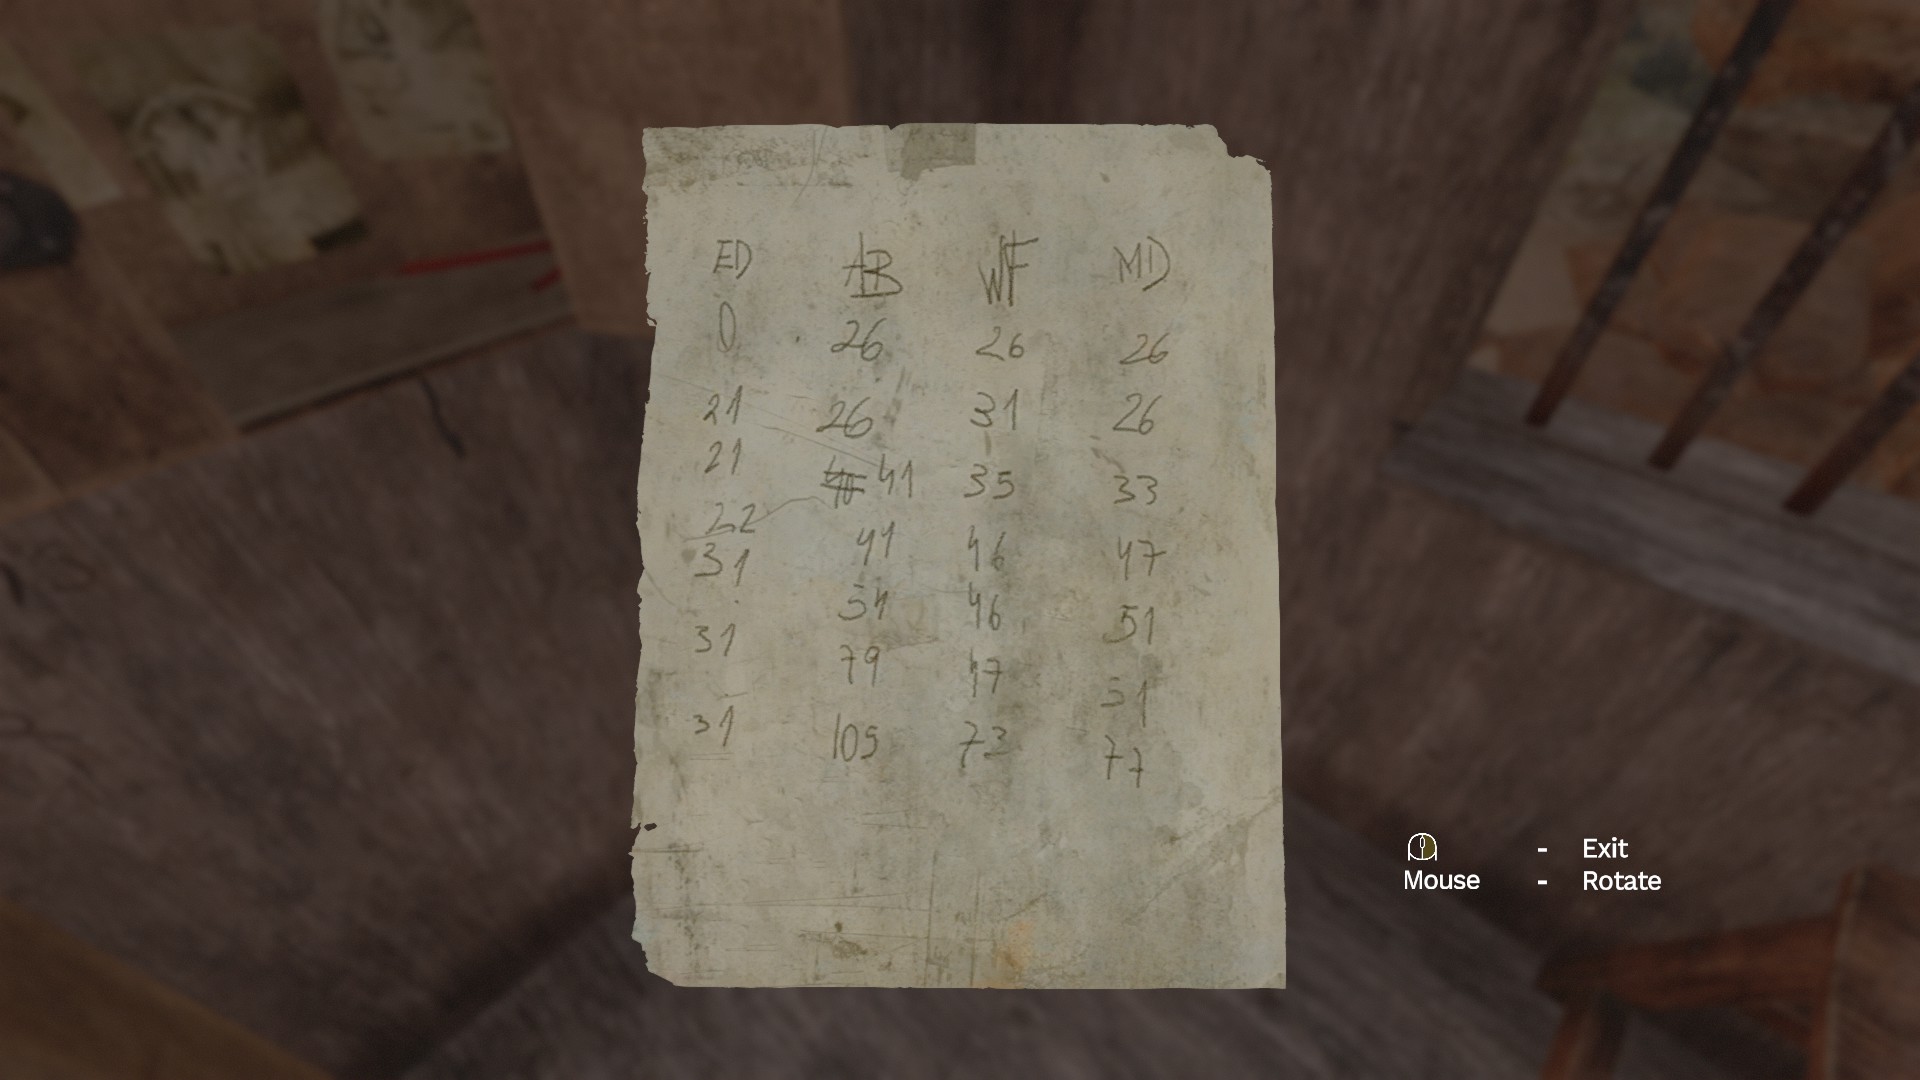 ED AB WF MD
0 26 26 26
21 26 31 26
21 41 35 33
22 41 46 47
31 54 46 51
31 79 47 51
31 105 73 77
- Exit
Mouse - Rotate